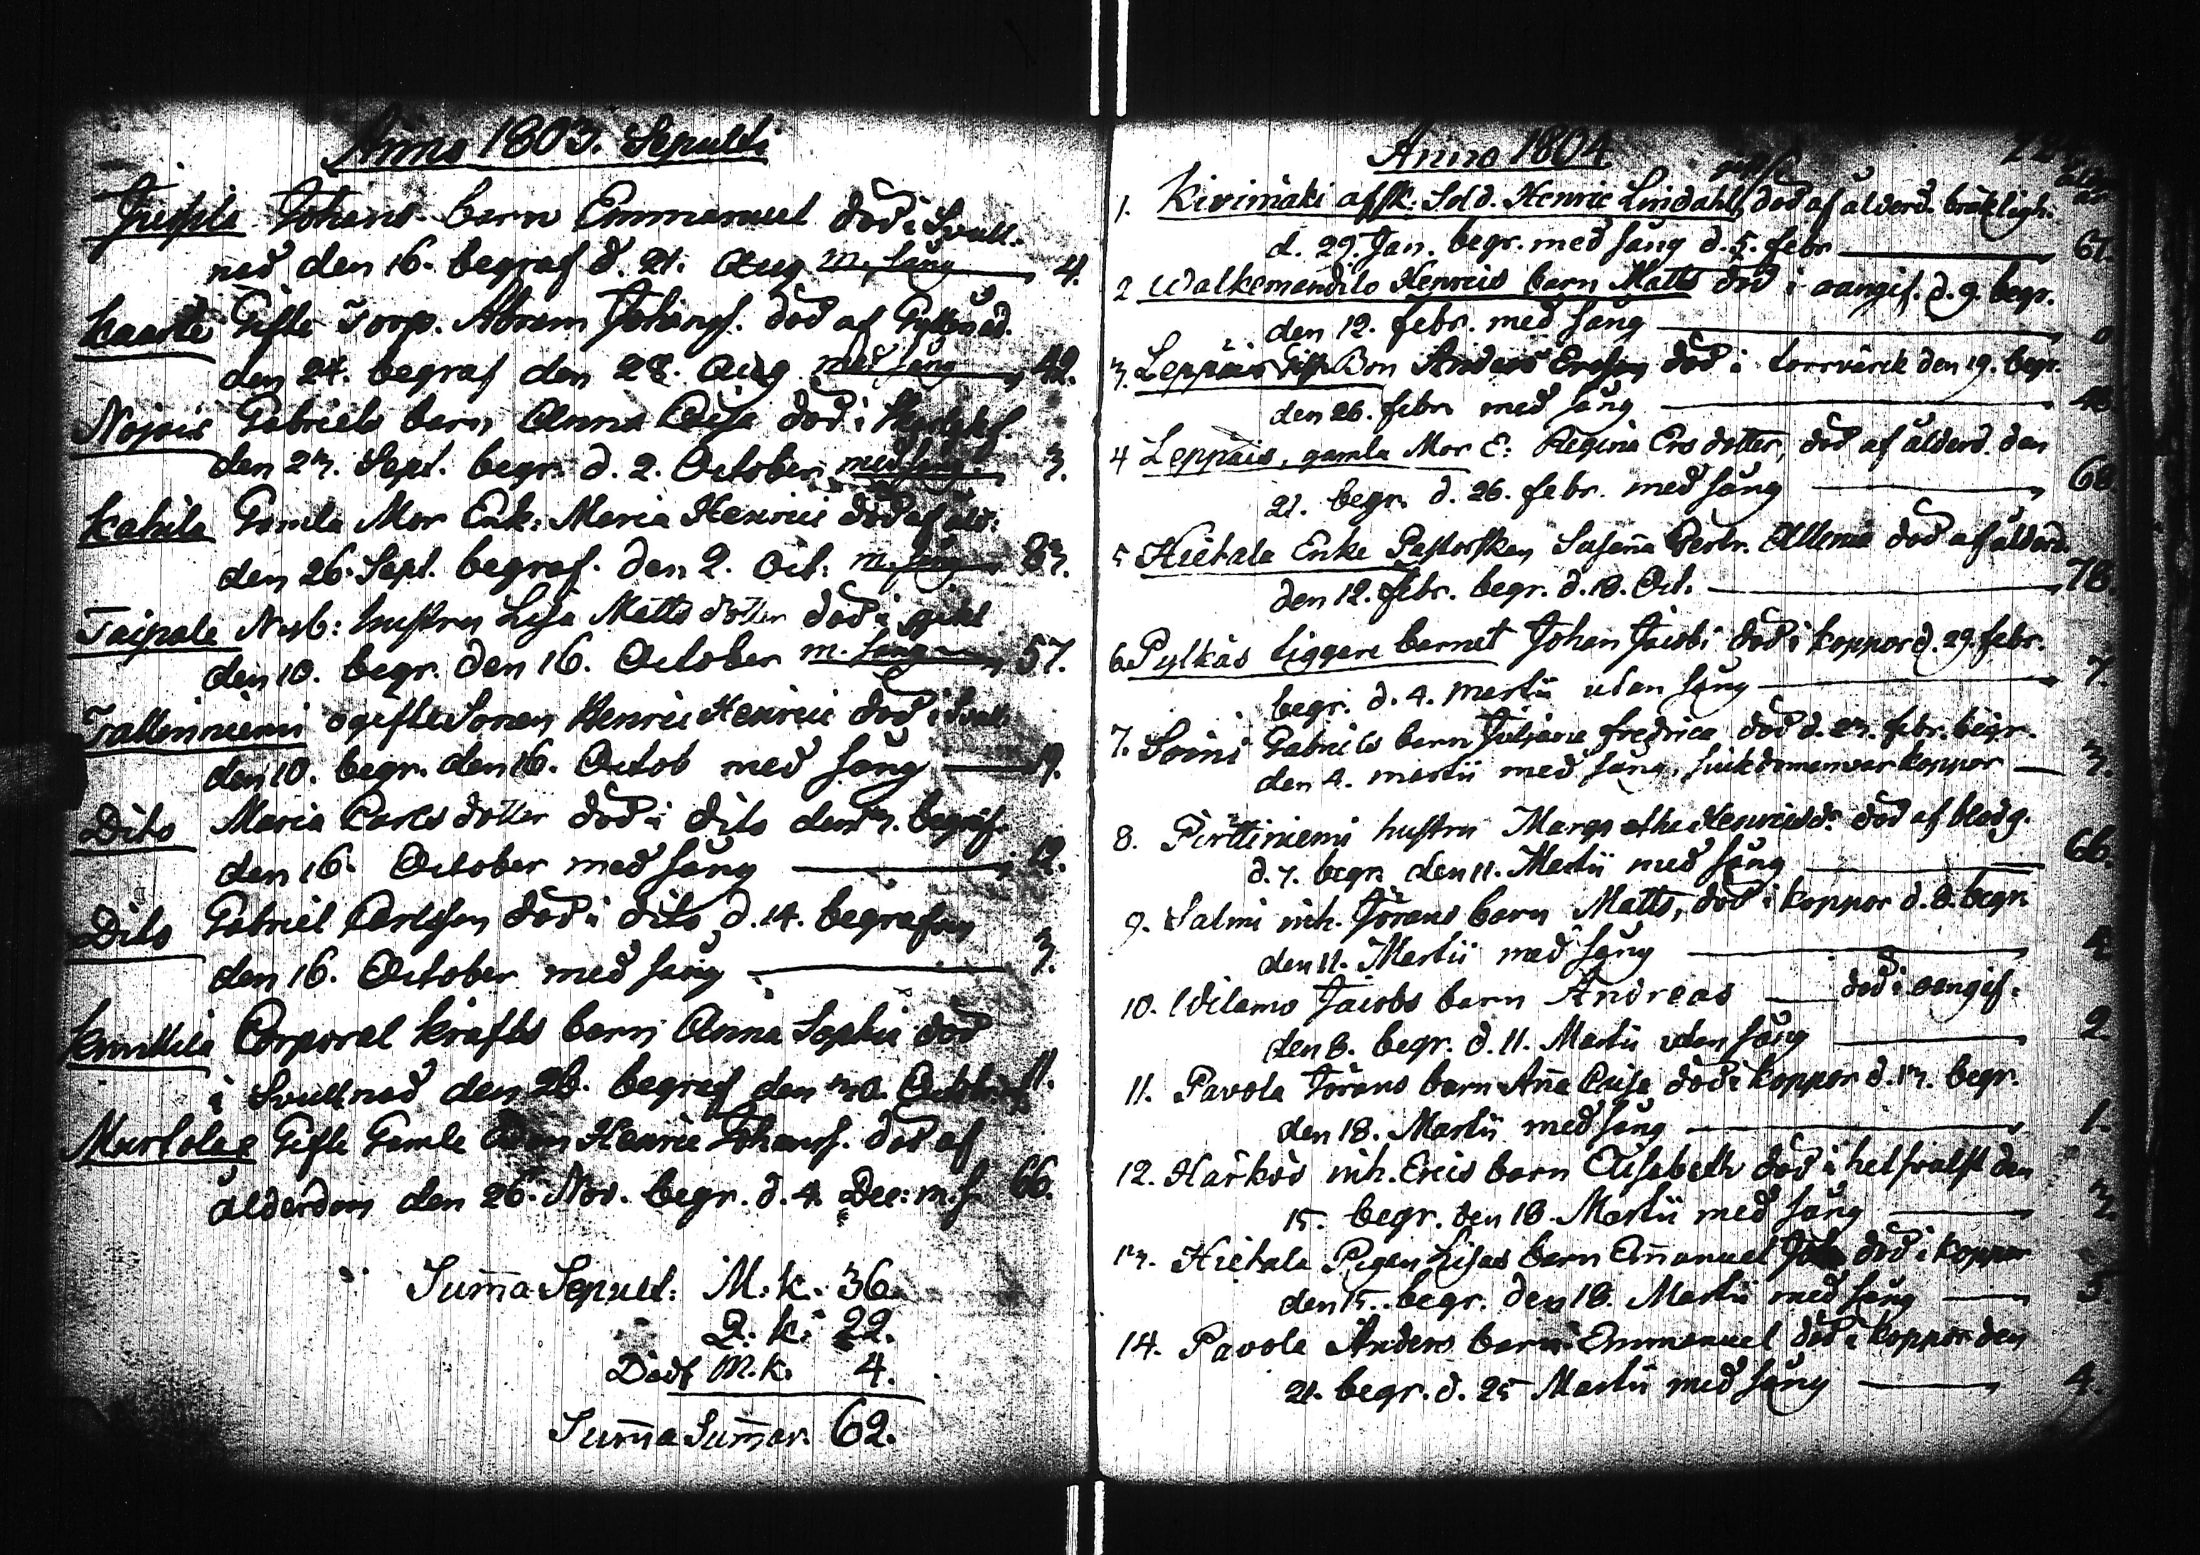 Anno 1803. Sepulti
Johans barn Emmanuel död i Svull-
nad den 16. begraf d. 21. Aug m. sång 4.
Kaarte Gifte Torp. Abram Johanss. död af
den 24. begraf den 28. Aug med sång 42.
Nojois Gabriels barn Anna Caisa död i
den 23. Sept. begr. d. 2. October med sång 3.
Kahila Gamla Mor Enk: Maria Henrici död af åld:
den 26. Sept. begraf. den 2. Oct: m. sång 83.
Taipale Nyb: hustru Lisa Matts dotter död i gikt
den 10. begr. den 16. October m. sång 57.
Tallinniemi ogifte Sonen Henric Henrici död i Svull:
den 10. begr. den 16. Octob med sång 19.
Dito Maria Carls dotter död i dito den 13. begraf.
den 16. October med sång 12.
Dito Gabriel Carlsson död i dito d. 14. begrafven
den 16. October med sång 3.
Corporal Krafts barn Anna Sophia död
i Svullnad den 26. begraf den 30. October 11.
Murtolax Gifte Gamle Henric Johanss. död af
ålderdom den 26. Nov. begr. d. 4. Dec: m. s. 66.
Sum̄a Sepult: M. k. 36.
Q. k. 22.
Dödf M. k. 4.
Sum̄a Sum̄ar. 62.
Anno 1804
år
1. Kivimäki afsk. Sold. Henric Lindahl, död af ålderd. bräkligh.
d. 29. Jan. begr. med sång d. 5. febr 67.
2 Walkemandilo Henrics barn Matts död i d. 9. begr.
den 12. febr. med sång
3. Leppäis Bon Anders Ersson död i torrvärck den 19. begr.
den 26. febr. med sång 43.
4 Leppäis, gamla Mor E: Regina Ers dotter, död af ålderd. den
21. begr. d. 26. febr. med sång 68.
5 Hietala Enke Pastorskan Susan̄a Gertr. Allenia död af ålderd.
den 12. febr. begr. d. 18. Oct. 78.
6. Pylkäs tiggare barnet Johan Jacobi död i koppor d. 29. febr.
begr. d. 4. Martii utan sång 7.
7. Soini Gabriels barn Juliana Fredrica död d. 23. febr. begr.
den 4. martii med sång, sjukdomen var koppor 3.
8. Pirttiniemi hustru Margretha Henricsdr död af blodg.
d. 7. begr. den 11. Martii med sång 66.
9. Salmi inh. Jörans barn Matts, död i koppor d. 8. begr.
den 11. Martii med sång 4
10. Wilamo Jacobs barn Andreas död i
den 8. begr. d. 11. Martii utan sång 2.
11. Pavola Jörans barn An̄a Caisa död i koppor d. 13. begr.
den 18. Martii med sång 1.
12. Härkös inh. Erics barn Elisabeth död i halssvulst den
15. begr. den 18. Martii med sång 3.
13. Hietala Pigan Lisas barn Em̄anuel död i koppor
den 15. begr. den 18. Martii med sång 5.
14. Pavola Anders barn Emmanuel död i koppor den
21. begr. d. 25 Martii med sång 4.